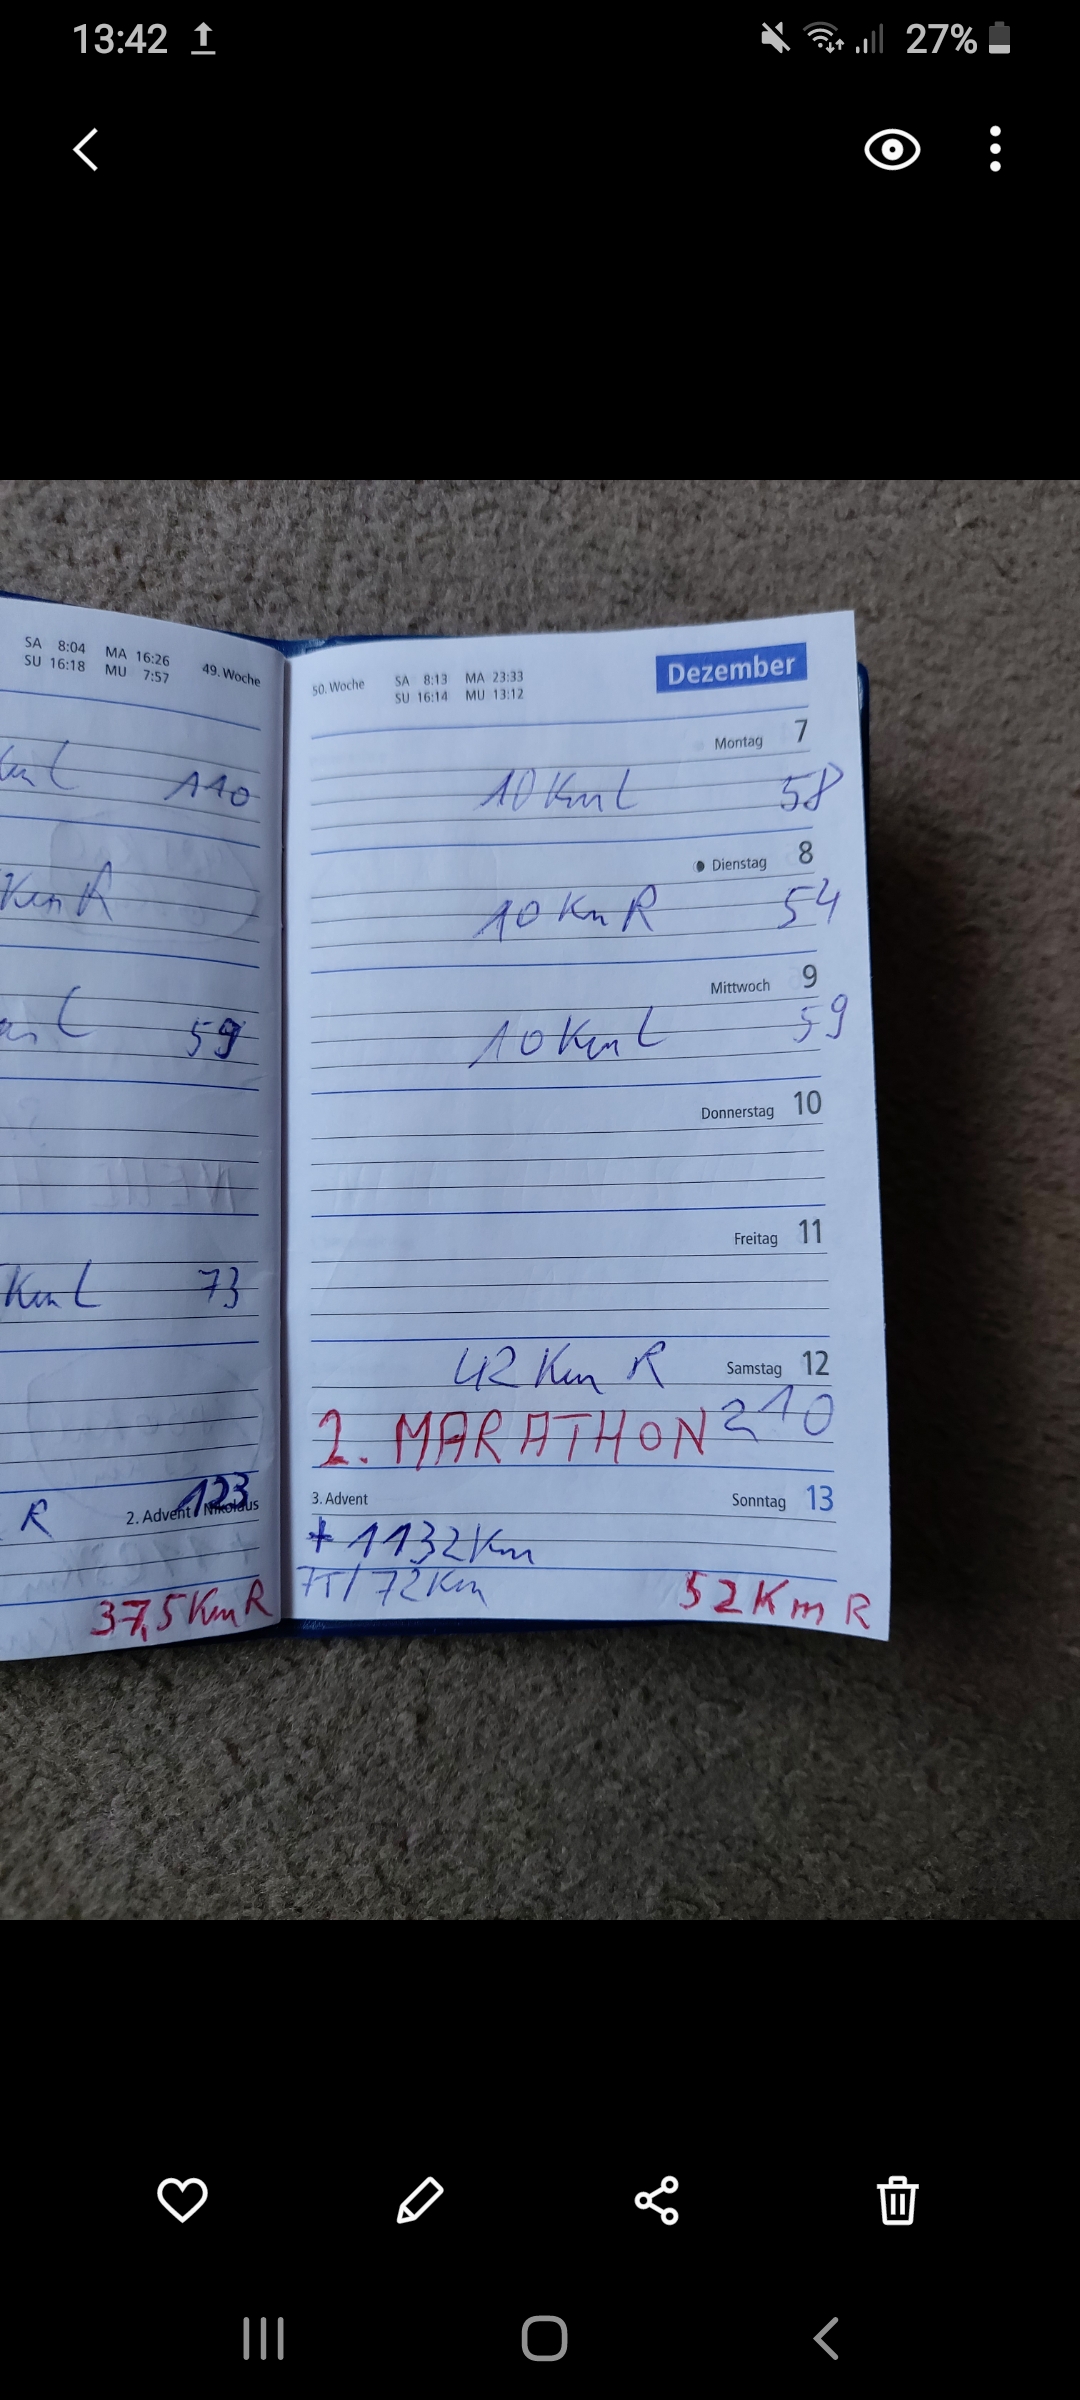 13:42
27%
SA 8:04 MA 16:26
SU 16:18 MU 7:57
49. Woche
Km L 110
Km R
L 59
Km L 73
123
R 2. Advent / Nikolaus
37,5 Km R
50. Woche
SA 8:13 MA 23:33
SU 16:14 MU 13:12
Dezember
Montag 7
10 Km L 58
Dienstag 8
10 Km R 54
Mittwoch 9
10 Km L 59
Donnerstag 10
Freitag 11
42 Km R Samstag 12
2. MARATHON 210
3. Advent Sonntag 13
+ 1132 Km
7T/72 Km 52 Km R